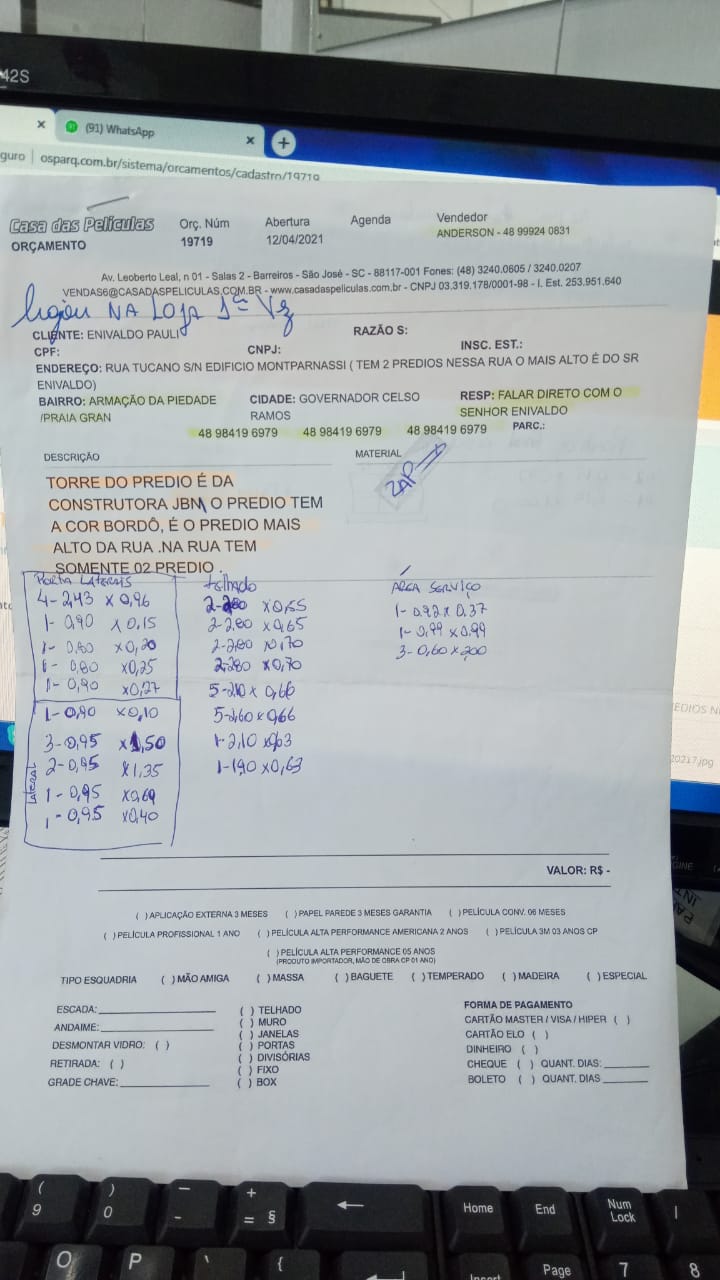 42S
(91) WhatsApp
guro | osparq.com.br/sistema/orcamentos/cadastro/19719
Casa das Películas Orç. Núm Abertura Agenda Vendedor
ORÇAMENTO 19719 12/04/2021 ANDERSON - 48 99924 0831
Av. Leoberto Leal, n 01 - Salas 2 - Barreiros - São José - SC - 88117-001 Fones: (48) 3240.0605 / 3240.0207
VENDAS6@CASADASPELICULAS.COM.BR - www.casadaspeliculas.com.br - CNPJ 03.319.178/0001-98 - I. Est. 253.951.640
ligou NA LOJA 1ª Vez
CLIENTE: ENIVALDO PAULI RAZÃO S:
CPF: CNPJ: INSC. EST.:
ENDEREÇO: RUA TUCANO S/N EDIFICIO MONTPARNASSI ( TEM 2 PREDIOS NESSA RUA O MAIS ALTO É DO SR
ENIVALDO)
BAIRRO: ARMAÇÃO DA PIEDADE CIDADE: GOVERNADOR CELSO RESP: FALAR DIRETO COM O
/PRAIA GRAN RAMOS SENHOR ENIVALDO
48 98419 6979 48 98419 6979 48 98419 6979 PARC.:
DESCRIÇÃO MATERIAL
ZAP
TORRE DO PREDIO É DA
CONSTRUTORA JBN, O PREDIO TEM
A COR BORDÔ, É O PREDIO MAIS
ALTO DA RUA .NA RUA TEM
SOMENTE 02 PREDIO .
PORTA LATERAIS
4- 2,43 x 0,96
1- 0,90 x 0,15
1- 0,80 x0,20
1- 0,80 x0,25
1- 0,90 x0,27
1- 0,90 x0,10
3- 0,95 x1,50
2- 0,95 x1,35
1- 0,95 x0,69
1- 0,95 x0,40
Lateral
telhado
2-2,80 x0,55
2-2,80 x0,65
2-2,80 x0,70
2-2,80 x0,70
5-2,10 x 0,66
5-2,60 x 0,66
1-2,10 x0,63
1-1,90 x0,63
AREA SERVIÇO
1- 0,92 x 0,37
1- 0,99 x0,99
3- 0,60 x 2,00
VALOR: R$ -
( ) APLICAÇÃO EXTERNA 3 MESES ( ) PAPEL PAREDE 3 MESES GARANTIA ( ) PELÍCULA CONV. 06 MESES
( ) PELÍCULA PROFISSIONAL 1 ANO ( ) PELÍCULA ALTA PERFORMANCE AMERICANA 2 ANOS ( ) PELÍCULA 3M 03 ANOS CP
( ) PELÍCULA ALTA PERFORMANCE 05 ANOS
(PRODUTO IMPORTADOR, MÃO DE OBRA CP 01 ANO)
TIPO ESQUADRIA ( ) MÃO AMIGA ( ) MASSA ( ) BAGUETE ( ) TEMPERADO ( ) MADEIRA ( ) ESPECIAL
ESCADA:
ANDAIME:
DESMONTAR VIDRO: ( )
RETIRADA: ( )
GRADE CHAVE:
( ) TELHADO
( ) MURO
( ) JANELAS
( ) PORTAS
( ) DIVISÓRIAS
( ) FIXO
( ) BOX
FORMA DE PAGAMENTO
CARTÃO MASTER / VISA / HIPER ( )
CARTÃO ELO ( )
DINHEIRO ( )
CHEQUE ( ) QUANT. DIAS:
BOLETO ( ) QUANT. DIAS
EDIOS N
20217.jpg
( ) _ + ← Home End Num Lock /
9 0 - = §
O P ` { Insert Page 7 8